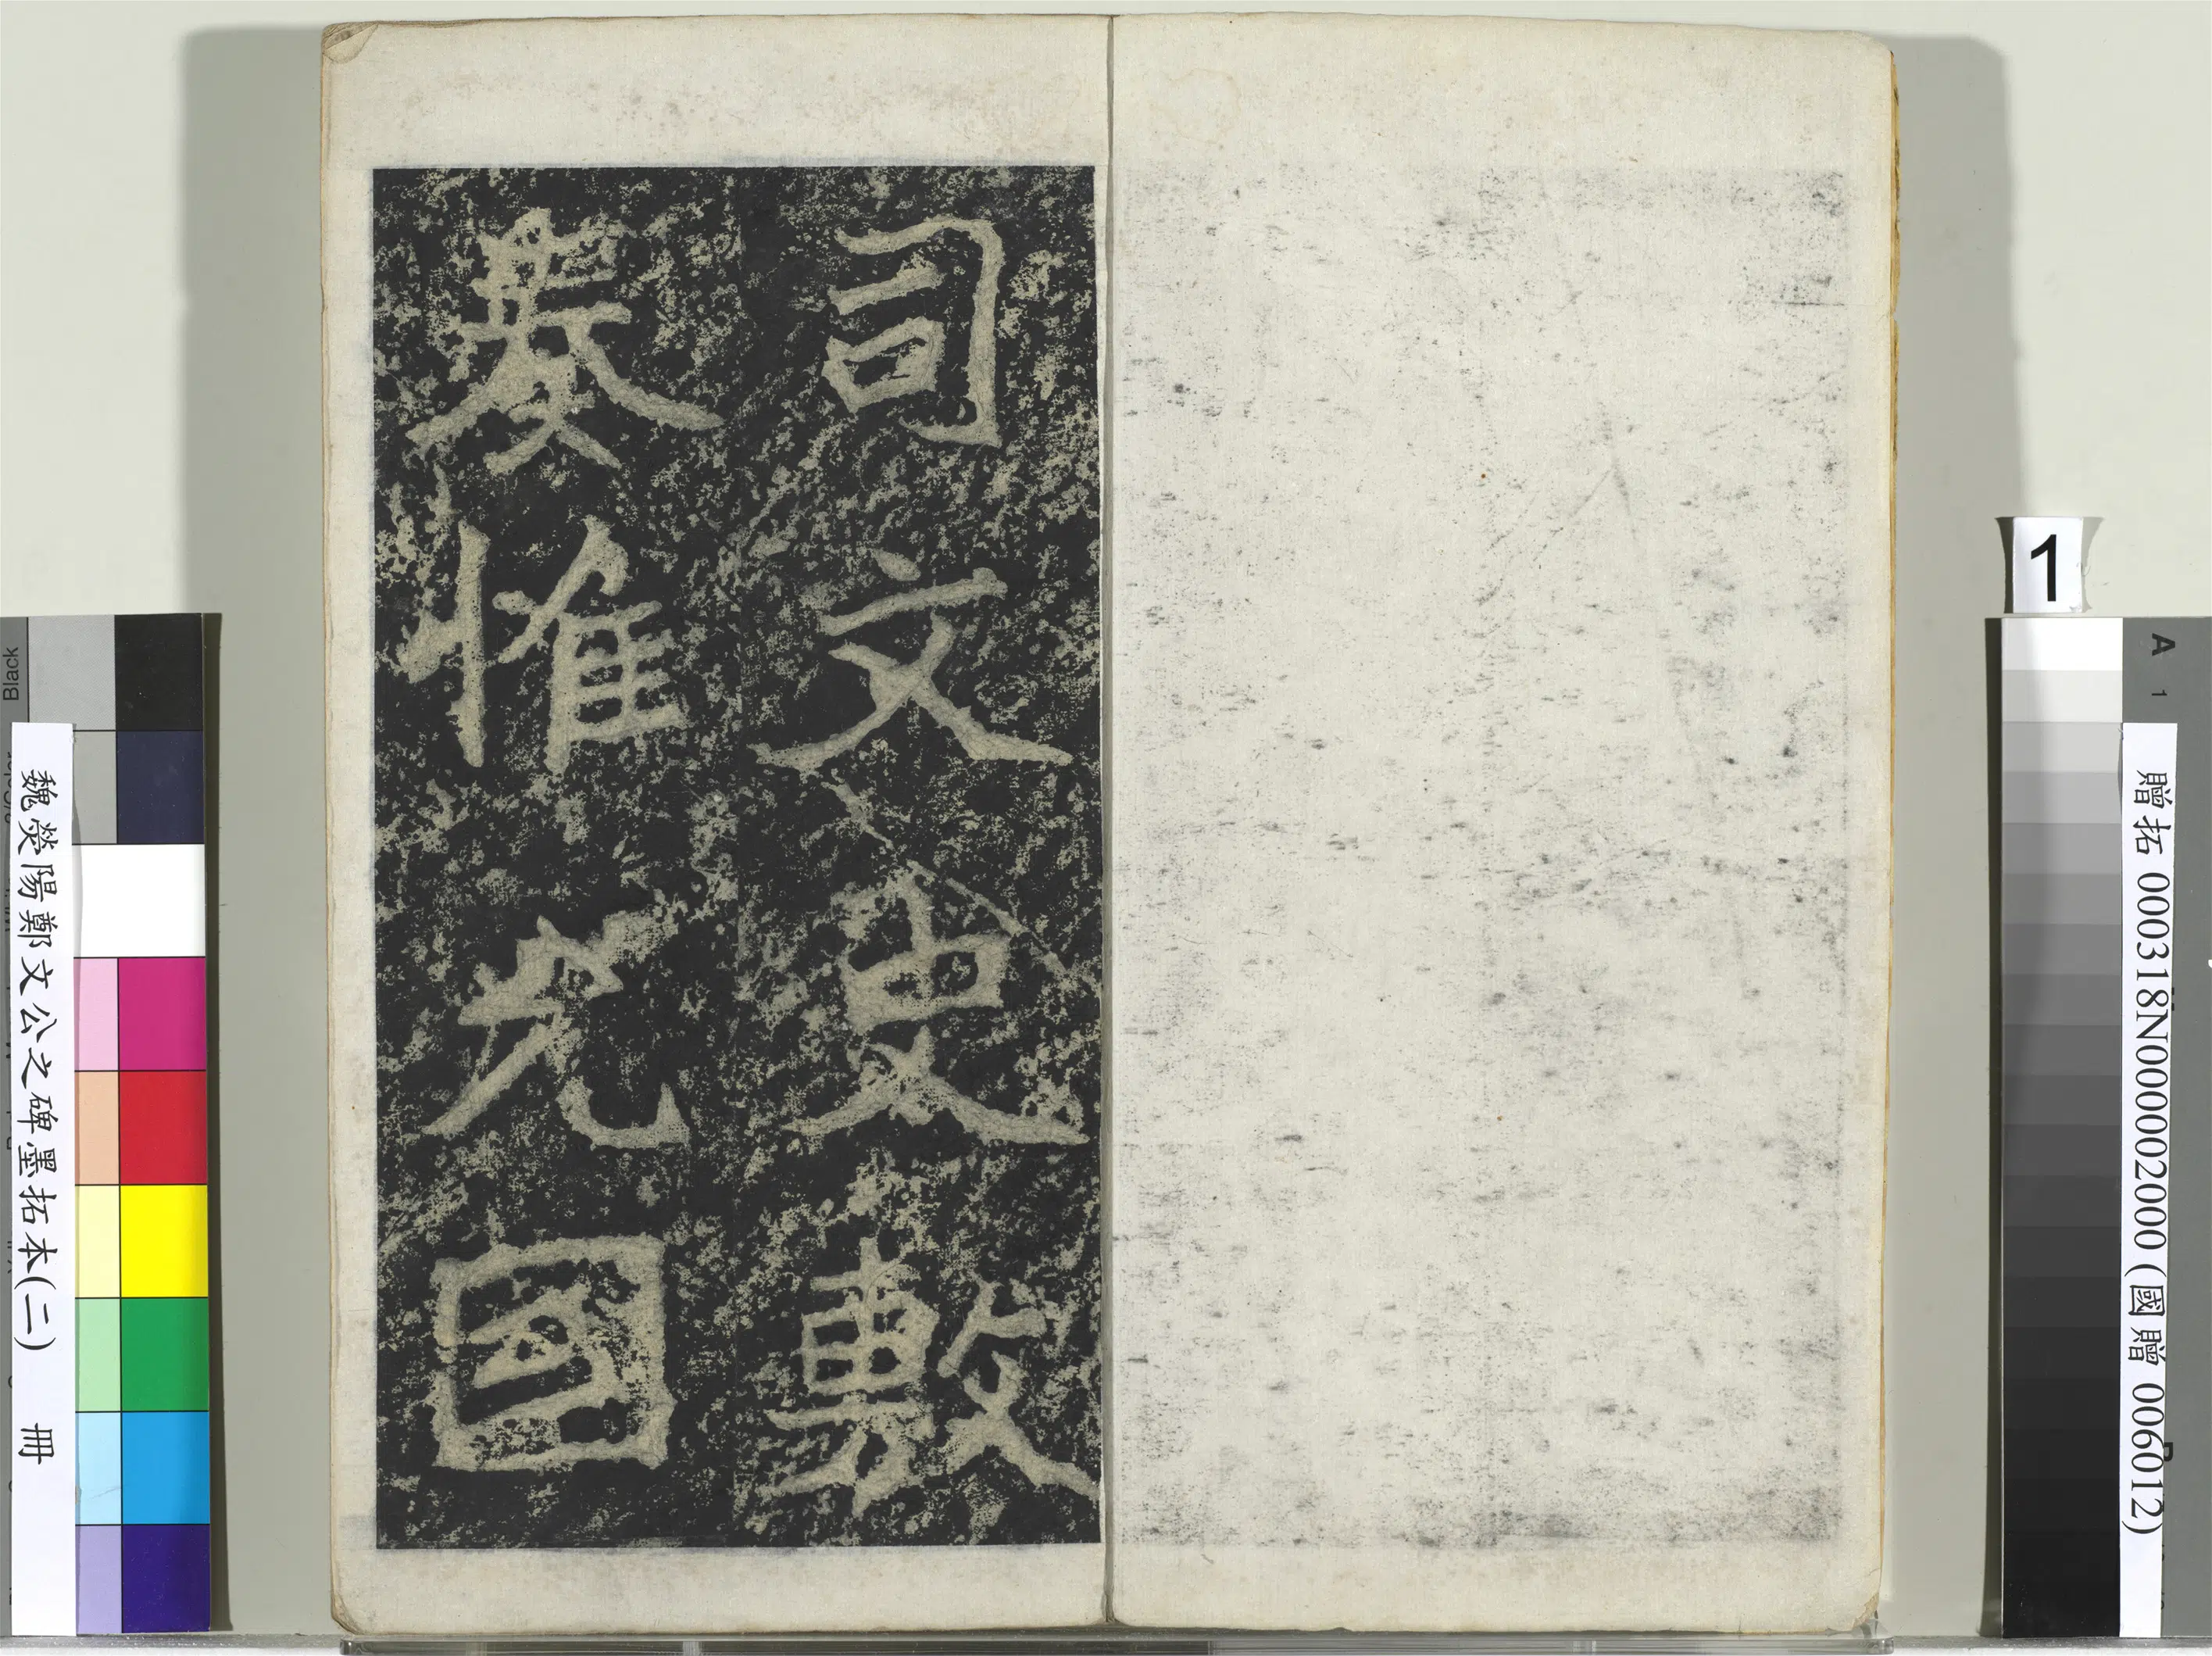 司文史敷
奏惟允國
魏滎陽鄭文公之碑墨拓本(二) 冊
贈拓 000318N000002000 (國贈 006012)
1
A
1
Black